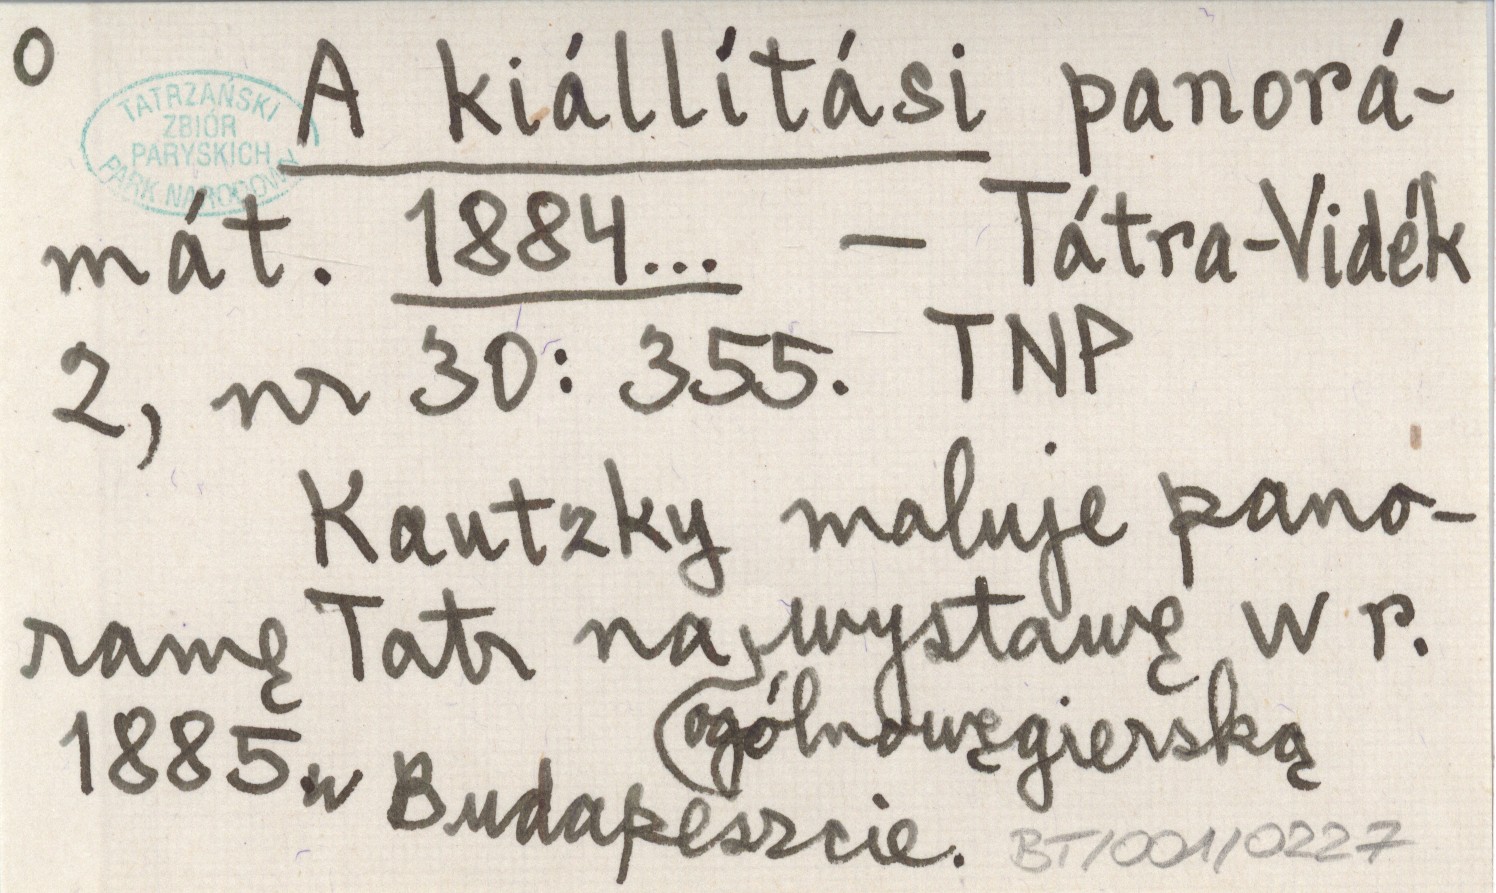 0
TATRZAŃSKI
ZBIÓR
PARYSKICH
PARK NARODOWY
A kiállítási panorá-
mát. 1884... — Tátra-Vidék
2, nr 30: 355. TNP
Kautzky maluje pano-
ramę Tatr na wystawę w r.
ogólnowęgierską
1885. w Budapeszcie.
BT/001/0227